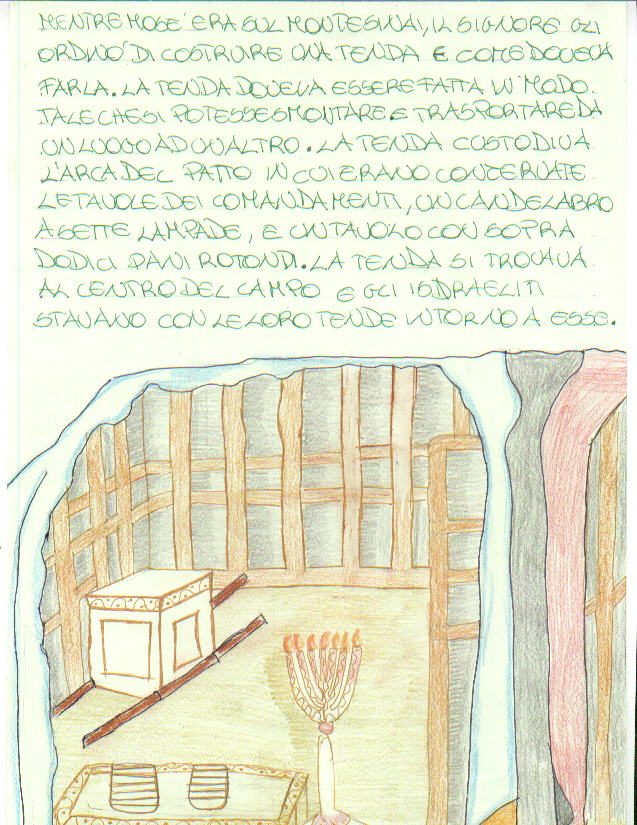 MENTRE MOSE' ERA SUL MONTE SINAI, IL SIGNORE GLI
ORDINO' DI COSTRUIRE UNA TENDA E COME DOVEVA
FARLA. LA TENDA DOVEVA ESSERE FATTA IN MODO
TALE CHE SI POTESSE SMONTARE E TRASPORTARE DA
UN LUOGO AD UN ALTRO. LA TENDA CUSTODIVA
L'ARCA DEL PATTO IN CUI ERANO CONSERVATE
LE TAVOLE DEI COMANDAMENTI, UN CANDELABRO
A SETTE LAMPADE, E UN TAVOLO CON SOPRA
DODICI PANI ROTONDI. LA TENDA SI TROVAVA
AL CENTRO DEL CAMPO E GLI ISDRAELITI
STAVANO CON LE LORO TENDE INTORNO A ESSE.